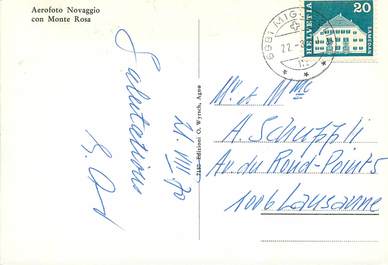 Aerofoto Novaggio
con Monte Rosa
Salutations
21. VIII 70
7182 Edizioni O. Wyrsch, Agno
6981 MIG
22.-8
HELVETIA
20
SAMEDAN
Mr et Mme
A. Schuppli
Av. du Rond-Point 5
1006 Lausanne